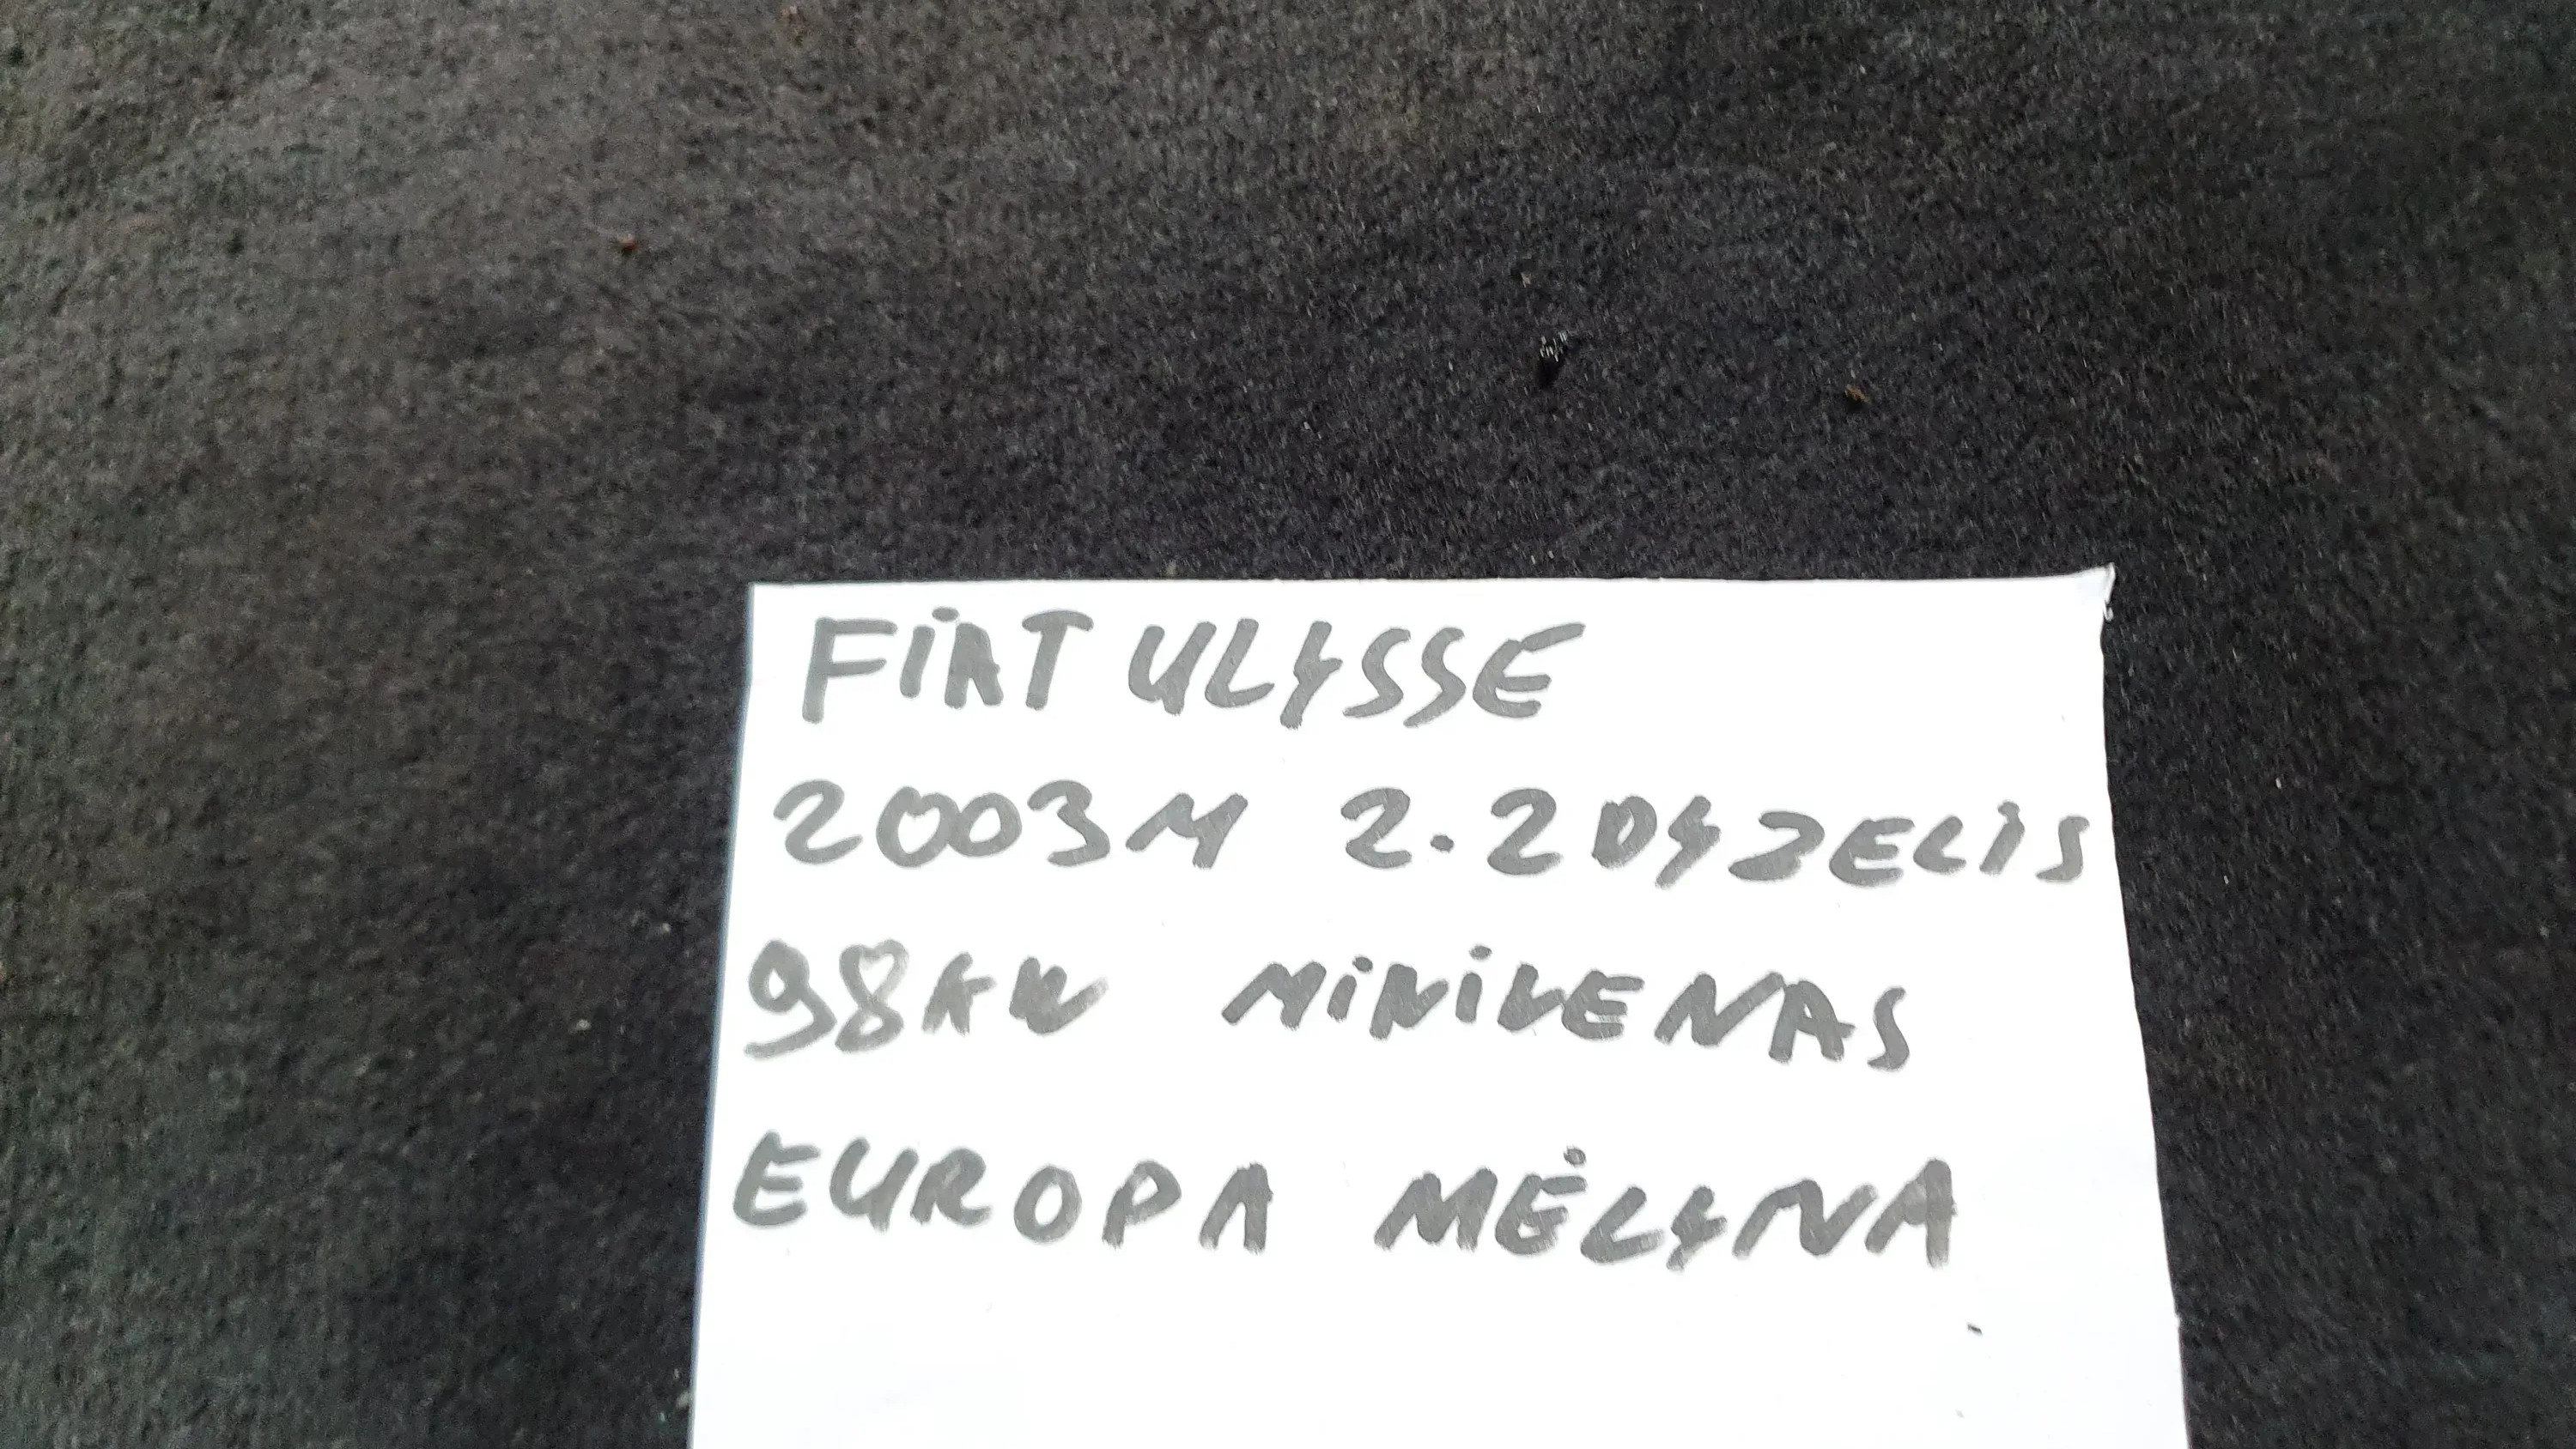 FIAT ULYSSE
2003M 2.2 DYZELIS
98KW MINIVENAS
EUROPA MĖLYNA